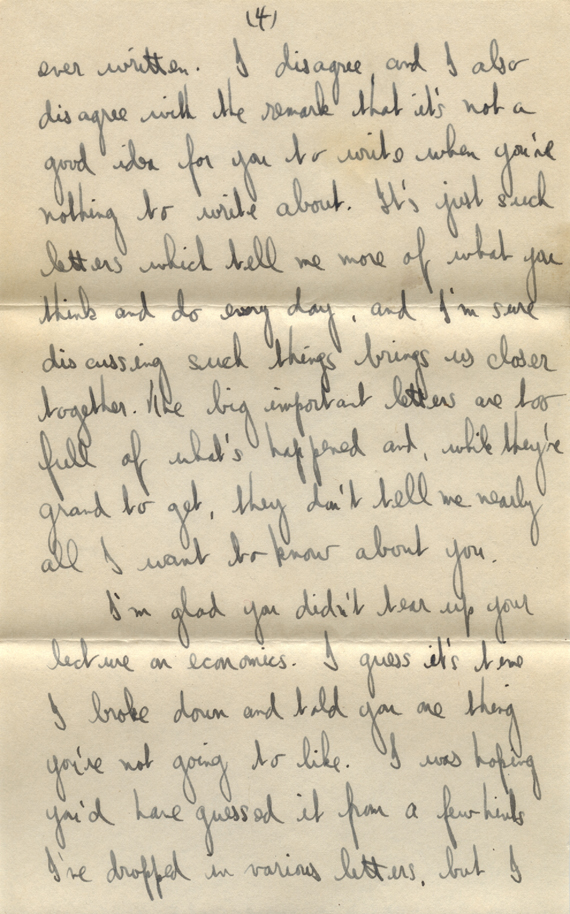 (4)
ever written. I disagree, and I also
disagree with the remark that it's not a
good idea for you to write when you've
nothing to write about. It's just such
letters which tell me more of what you
think and do every day, and I'm sure
discussing such things brings us closer
together. The big important letters are too
full of what's happened and, while they're
grand to get, they don't tell me nearly
all I want to know about you.
I'm glad you didn't tear up your
lecture on economics. I guess it's time
I broke down and told you one thing
you're not going to like. I was hoping
you'd have guessed it from a few hints
I've dropped in various letters, but I